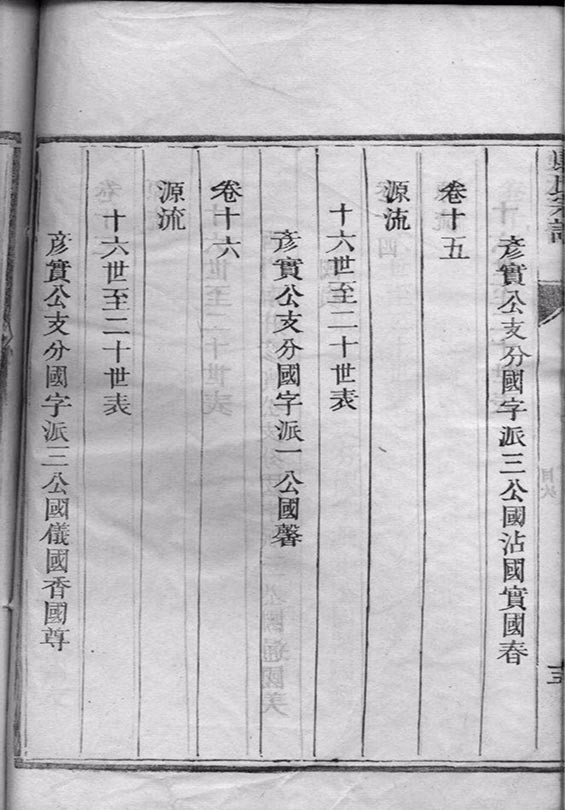 彦實公支分國字派三公國沾國實國春
卷十五
源流
十六世至二十世表
彦實公支分國字派一公國馨
卷十六
源流
十六世至二十世表
彦實公支分國字派三公國儀國香國尊